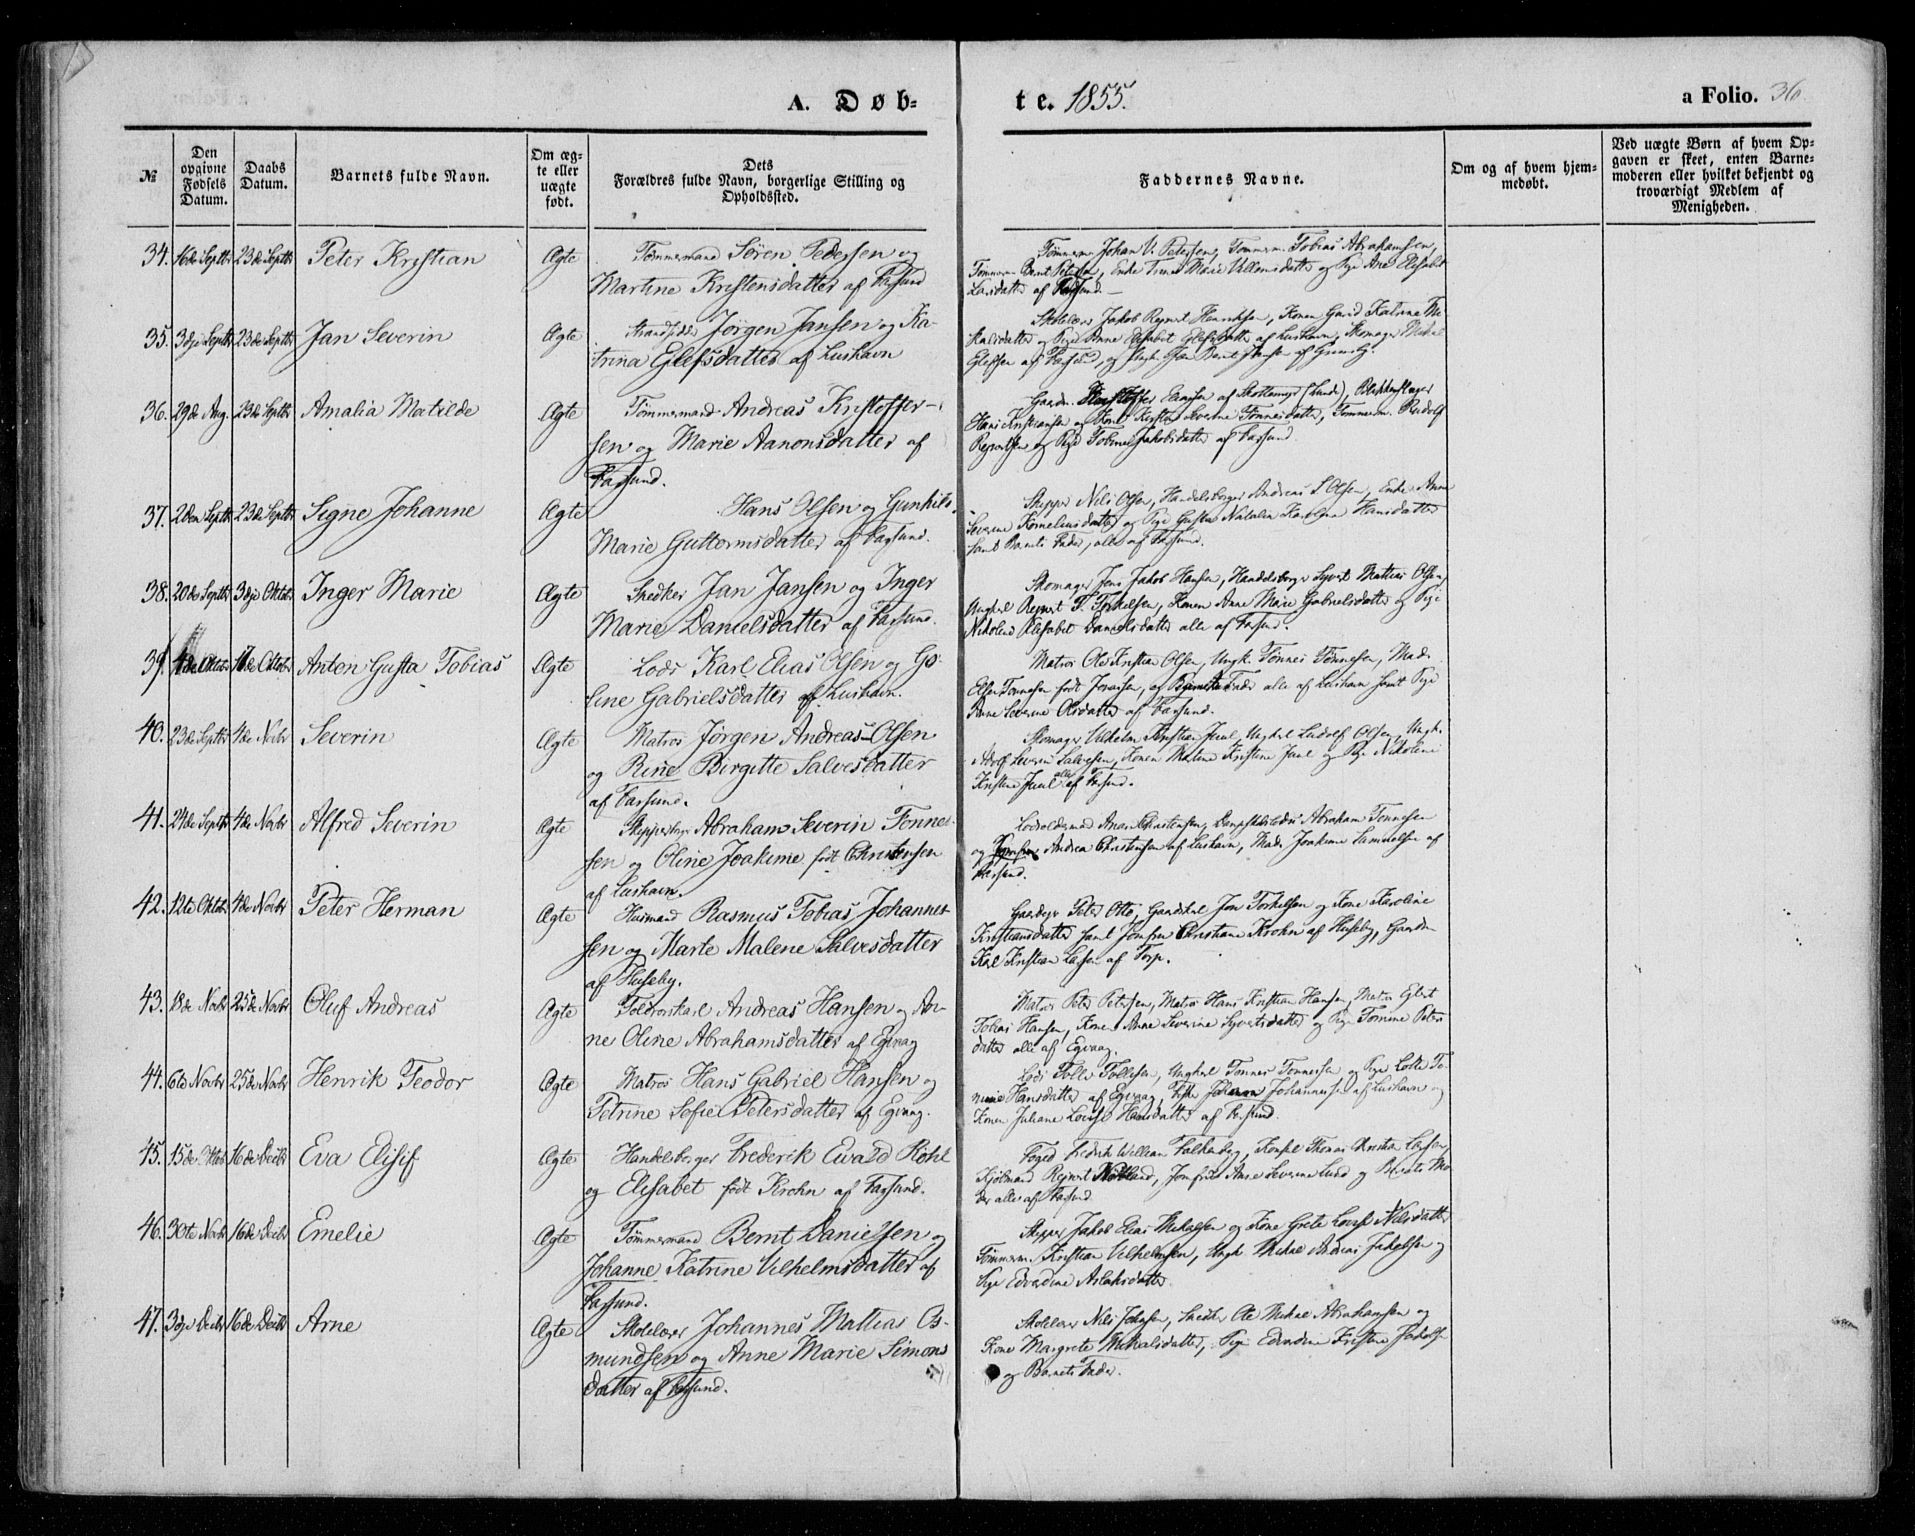 A. Døb-
te. 1855.
a Folio. 36.
№
Den opgivne Fødsels Datum.
Daabs Datum.
Barnets fulde Navn.
Om ægte eller uægte født.
Dets
Forældres fulde Navn, borgerlige Stilling og
Opholdssted.
Faddernes Navne.
Om og af hvem hjem-
medøbt.
Ved uægte Børn af hvem Op-
gaven er skeet, enten Barne-
moderen eller hvilket bekjendt og
troværdigt Medlem af
Menigheden.
34. 16de Septbr 23de Septbr Peter Kristian Ægte Tømmermand Sören Pedersen og
Martine Kristensdatter af Farsund
Tömmerm. Johan V. Petersen, Tömmerm. Tobias Abrahamsen,
Tömmerm. Bernt Petersen, Enke Marie Villumsdatter og Pige Ane Elisabet
Larsdatter af Farsund.
35. 3dje Septbr 23de Septbr Jan Severin Ægte Jörgen Jansen og Ka-
trina Glefsdatter af Lushavn
Skolelærer Jakob Reinert Henriksen, Konen Katrine Mi-
kalsdatter og Pige Anne Elisabet Glefsdatter af Lushavn, Skomager Mikal
Glefsen af Farsund, og Bernt Jansen af
36. 29de Aug. 23de Septbr Amalia Matilde Ægte Tömmermand Andreas Kristoffer-
sen og Marie Aanonsdatter af
Farsund.
Gaardm. Kristoffer af (Lunde),
Hans Kristiansen og Severine Tönnesdatter, Tömmerm. Rudolf
Reinertsen og Pige Tobine Jakobsdatter af Farsund.
37. 2den Septbr 23de Septbr Signe Johanne Ægte Hans Olsen og Gunhild
Marie Guttormsdatter af Farsund.
Skipper Nils Olsen, Handelsborger Andreas S Olsen, Enke Anne
Severine Korneliusdatter og Pige Gusta Natalia Karolina Hansdatter
samt Barnets Fader, alle af Farsund.
38. 20de Septbr 3dje Oktbr Inger Marie Ægte Snedker Jan Jansen og Inger
Marie Danielsdatter af Farsund.
Skomager Jens Jakob Hansen, Handelsborger Syvert Mattias Olsen,
Ungkarl Reinert T. Torkelsen, Konen Anne Marie Gabrielsdatter og Pige
Nikoline Elisabet Danielsdatter alle af Farsund.
39. Oktbr Oktbr Anton Gusta Tobias Ægte Lods Karl Elias Olsen og Go-
line Gabrielsdatter af Lushavn.
Matros Ole Kristian Olsen, Ungk. Tönnes Tönnesen, Mad.
Elsen Tönnesen født og Barnets Fader alle af Lushavn samt Pige
Anne Severine Olsdatter af Farsund.
40. 23de Septbr 4de Novbr Severin Ægte Matros Jörgen Andreas Olsen
og Rine Birgitte Salvesdatter
af Farsund.
Skomager Vilhelm Kristian Juul, Ungkarl Ludolf Olsen, Ungk.
Adolf Severin Salvesen, Konen Malene Kristine Juul og Pige Nikoline
Kristine Juul alle af Farsund.
41. 24de Septbr 4de Novbr Alfred Severin Ægte Skipperborger Abraham Severin Tönnes-
sen og Oline Joakime født Christensen
af Lushavn.
Lodsoldermand Anan Christensen, Abraham Tönnesen
og Jomfru Andrea Christensen af Lushavn, Mad. Joakime Samuelsen af
Farsund.
42. 12te Oktbr 4de Novbr Peter Herman Ægte Husmand Rasmus Tobias Johannes-
sen og Marte Malene Salvesdatter
af Huseby.
Peter Otto, Gaardskarl Jon Torkelsen og Kone Karoline
Kristiansdatter samt Jomfru Christiane Krohn af Huseby, Gaardm.
Karl Kristian af Torp.
43. 18de Novbr 25de Novbr Oluf Andreas Ægte Toldrorskarl Andreas Hansen og An-
ne Oline Abrahamsdatter af Egvaag
Matros Peter Petersen, Matros Hans Kristian Hansen, Matros Eilert
Tobias Hansen, Konen Anne Severine Syvertsdatter og Pige Tomine Peters
datter alle af Egvaag.
44. 6te Novbr 25de Novbr Henrik Teodor Ægte Matros Hans Gabriel Hansen og
Petrine Sofie Petersdatter af Egvaag.
Lods Tolle Tollesen, Ungkarl Tönnes Tönnesen og Pige Lotte To-
mine Hansdatter af Egvaag, Johan Johannesen af Lushavn og
Konen Juliane Lovise Hansdatter af Farsund.
45. 15de 16de Decbr Eva Elisif Ægte Handelsborger Frederik Ewald Rohl
og Elisabet født Krohn af Farsund.
Foged Fredrik William Falkenberg, Konsul Thomas Kristian
Kjöbmand Reinert Jomfru Ane Severine Lund og Barnets Mo-
der alle af Farsund
46. 30te Novbr 16de Decbr Emelie Ægte Tömmermand Bernt Danielsen og
Johanne Katrine Vilhelmsdatter af
Farsund.
Skipper Jakob Elias Mikalsen og Kone Grete Lovise Nilsdatter
Tömmerm. Kristian Vilhelmsen, Ungk. Mikal Andreas Jakobsen og
Pige Edvardine Aslaksdatter
47. 3dje Decbr 16de Decbr Arne Ægte Skolelærer Johannes Mattias Os-
mundsen og Anne Marie Simons
datter af Farsund.
Skolelærer Nils Snedker Ole Mikal Abrahamsen og
Kone Margrete Mikalsdatter, Pige Edvardine Kristine
og Barnets Fader.